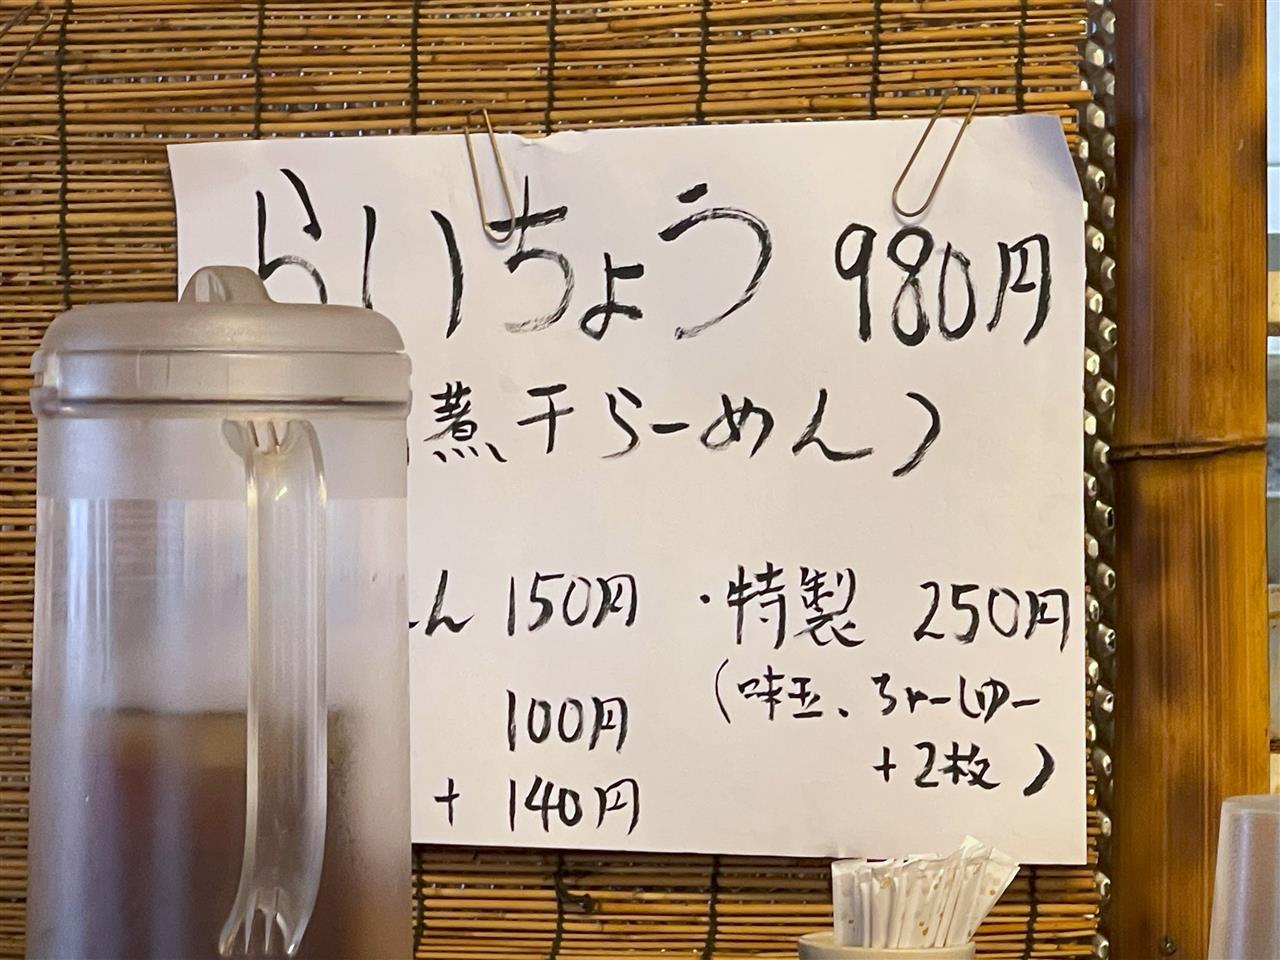 らいちょう 980円
煮干らーめん)
150円
・特製 250円
(味玉、ちゃーしゅー
+2枚)
100円
+140円